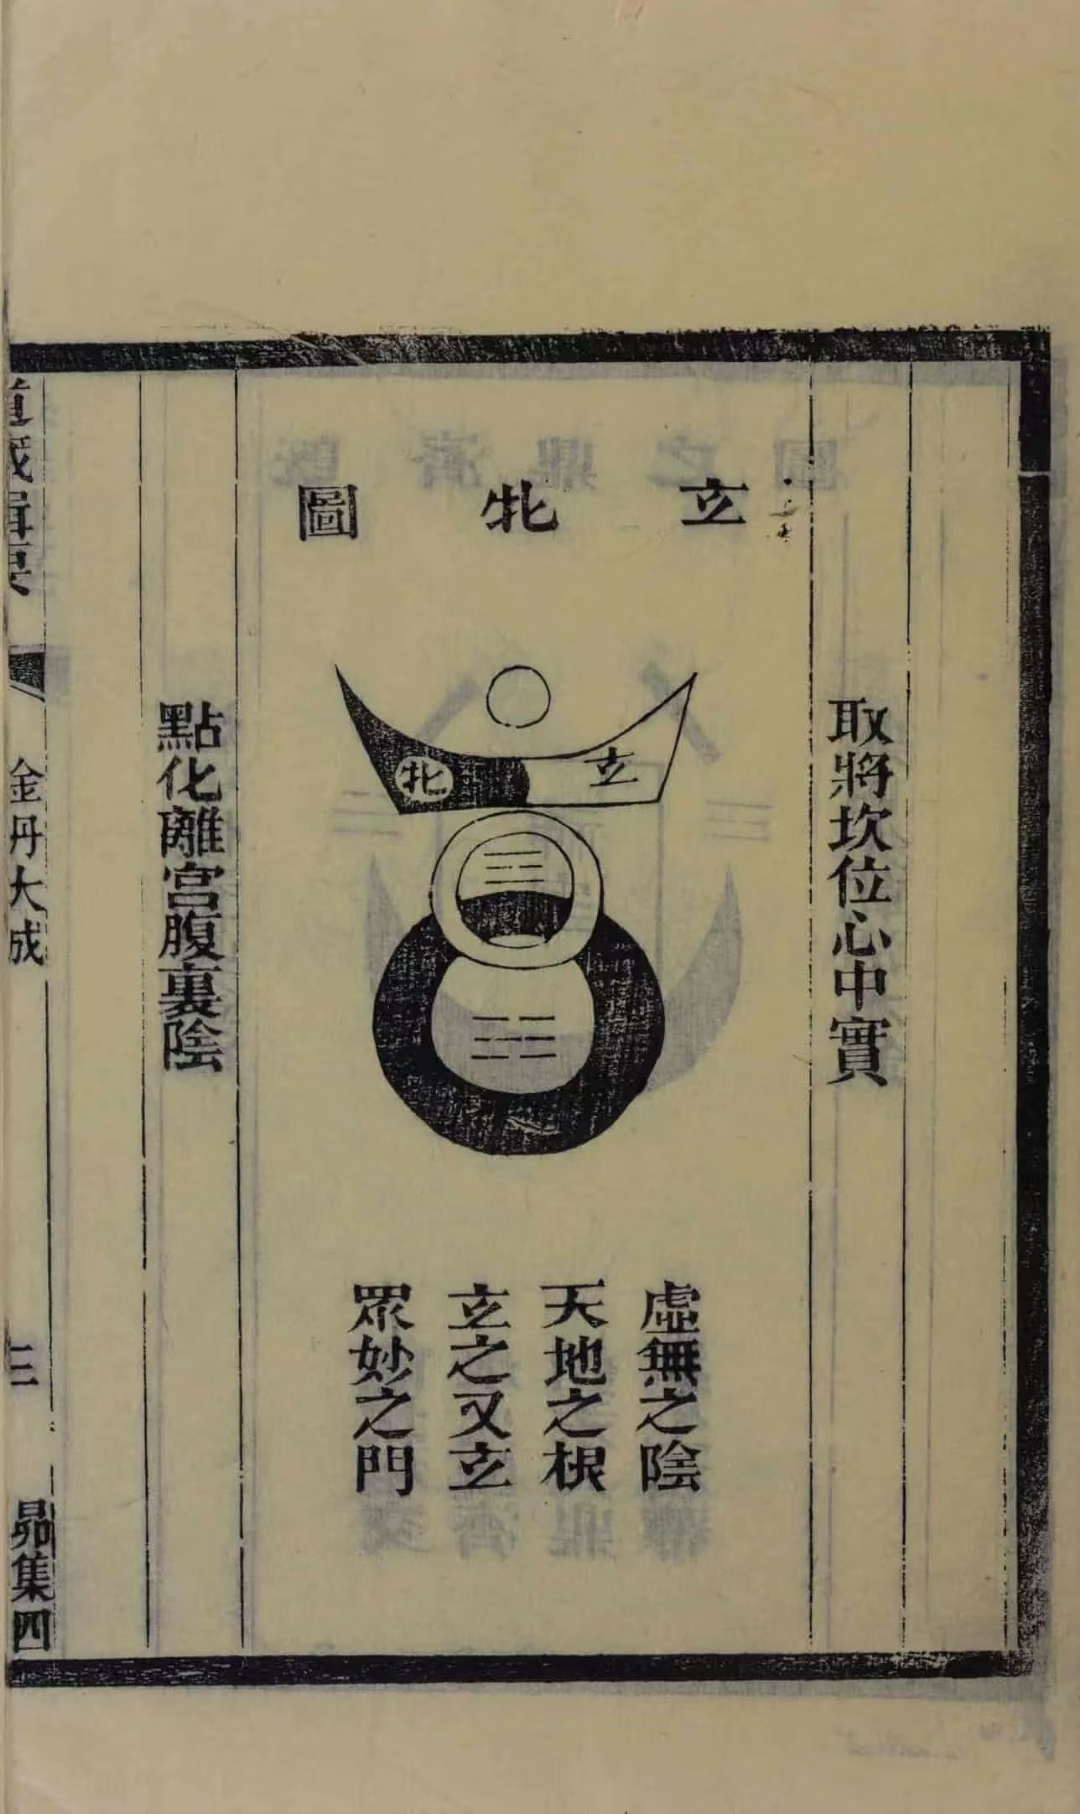 取將坎位心中實
玄牝圖
玄
牝
虛無之陰
天地之根
玄之又玄
眾妙之門
點化離宮腹裏陰
道藏輯要
金丹大成
三
昴集四